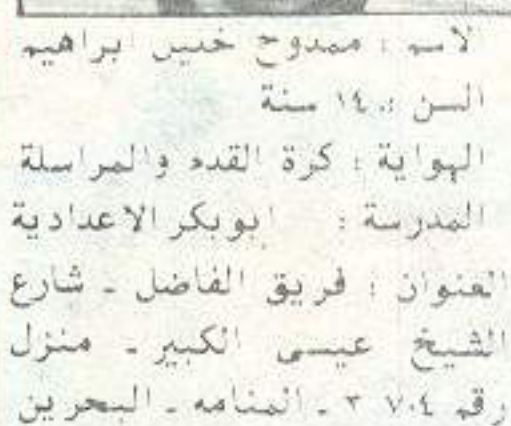 الاسم : ممدوح خليل ابراهيم
السن : ١٤ سنة
الهواية : كرة القدم والمراسلة
المدرسة : ابوبكر الاعدادية
العنوان : فريق الفاضل ـ شارع
الشيخ عيسى الكبير ـ منزل
رقم ٧٠٤ ٣ ـ المنامه ـ البحرين